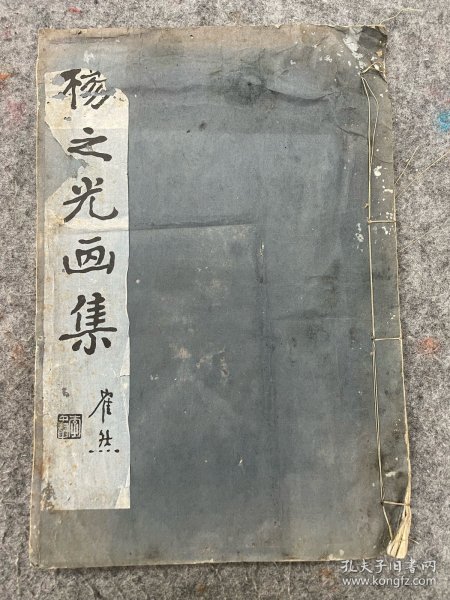 杨之光画集
崔然
孔夫子旧书网
www.kongfz.com